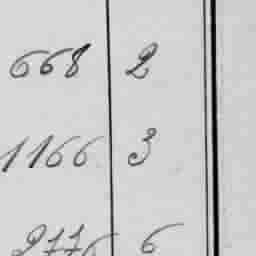 668 2
1166 3
2776 6